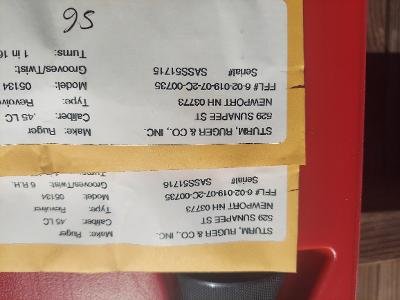 STURM, RUGER & CO., INC.
529 SUNAPEE ST
NEWPORT NH 03773
FFL# 6-02-019-07-2C-00735
Serial# SASS51716
Make: Ruger
Caliber: .45 LC
Type: Revolver
Model: 05134
Grooves/Twist: 6 R.H.
STURM, RUGER & CO., INC.
529 SUNAPEE ST
NEWPORT NH 03773
FFL# 6-02-019-07-2C-00735
Serial# SASS51715
Make: Ruger
Caliber: .45 LC
Type: Revolve
Model: 05134
Grooves/Twist:
Turns: 1 in 16